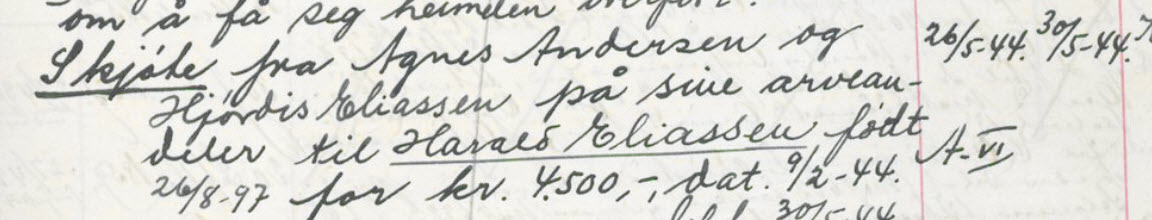 om å få seg heimelen overført.
Skjøte fra Agnes Andersen og 26/5-44. 30/5-44.
Hjørdis Eliassen på sine arvean-
deler til Harald Eliassen født A-VI
26/8-97 for kr. 4.500,-, dat. 9/2-44.
30/5-44